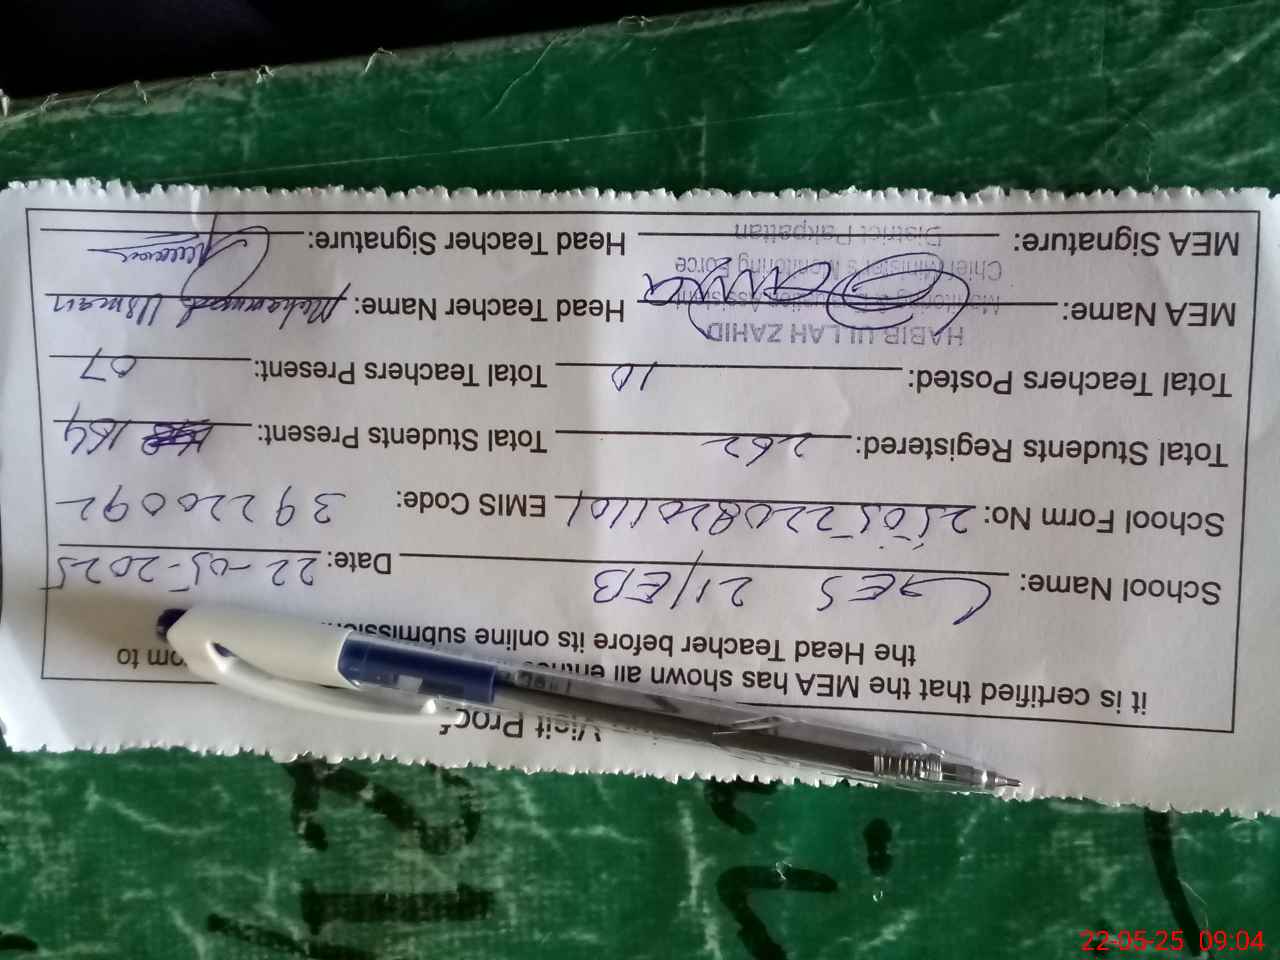 Visit Proof
it is certified that the MEA has shown all entries to
the Head Teacher before its online submission.
School Name: GES 21/EB Date: 22-05-2025
School Form No: EMIS Code: 39220092
Total Students Registered: 262 Total Students Present: 164
Total Teachers Posted: 10 Total Teachers Present: 07
HABIB ULLAH ZAHID
MEA Name: Head Teacher Name: Muhammad Usman
Chief Minister's Monitoring Force
District Pakpattan
MEA Signature: Head Teacher Signature:
22-05-25 09:04